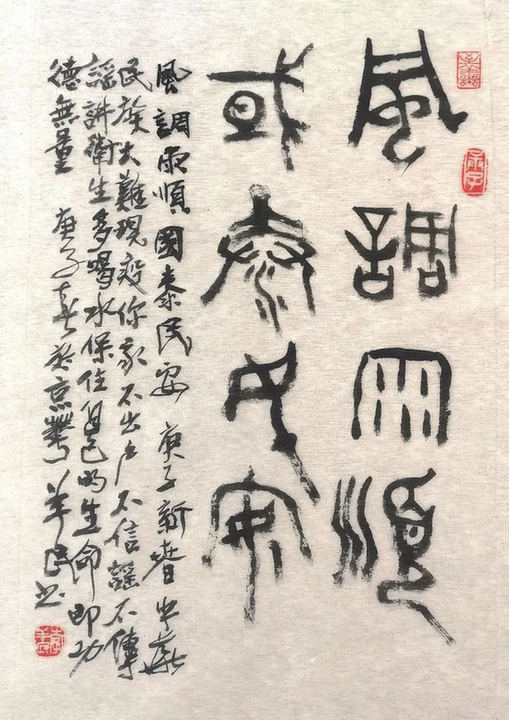 風調雨順
或泰民安
風調雨順國泰民安 庚子新春中華
民族大難現疫你家不出户不信謠不傳
謠講衛生多喝水保住自己的生命即功
德無量 庚子春於京華 民书